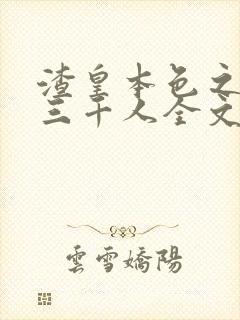 渣皇本色之
三千人全文
雲雪嬌陽